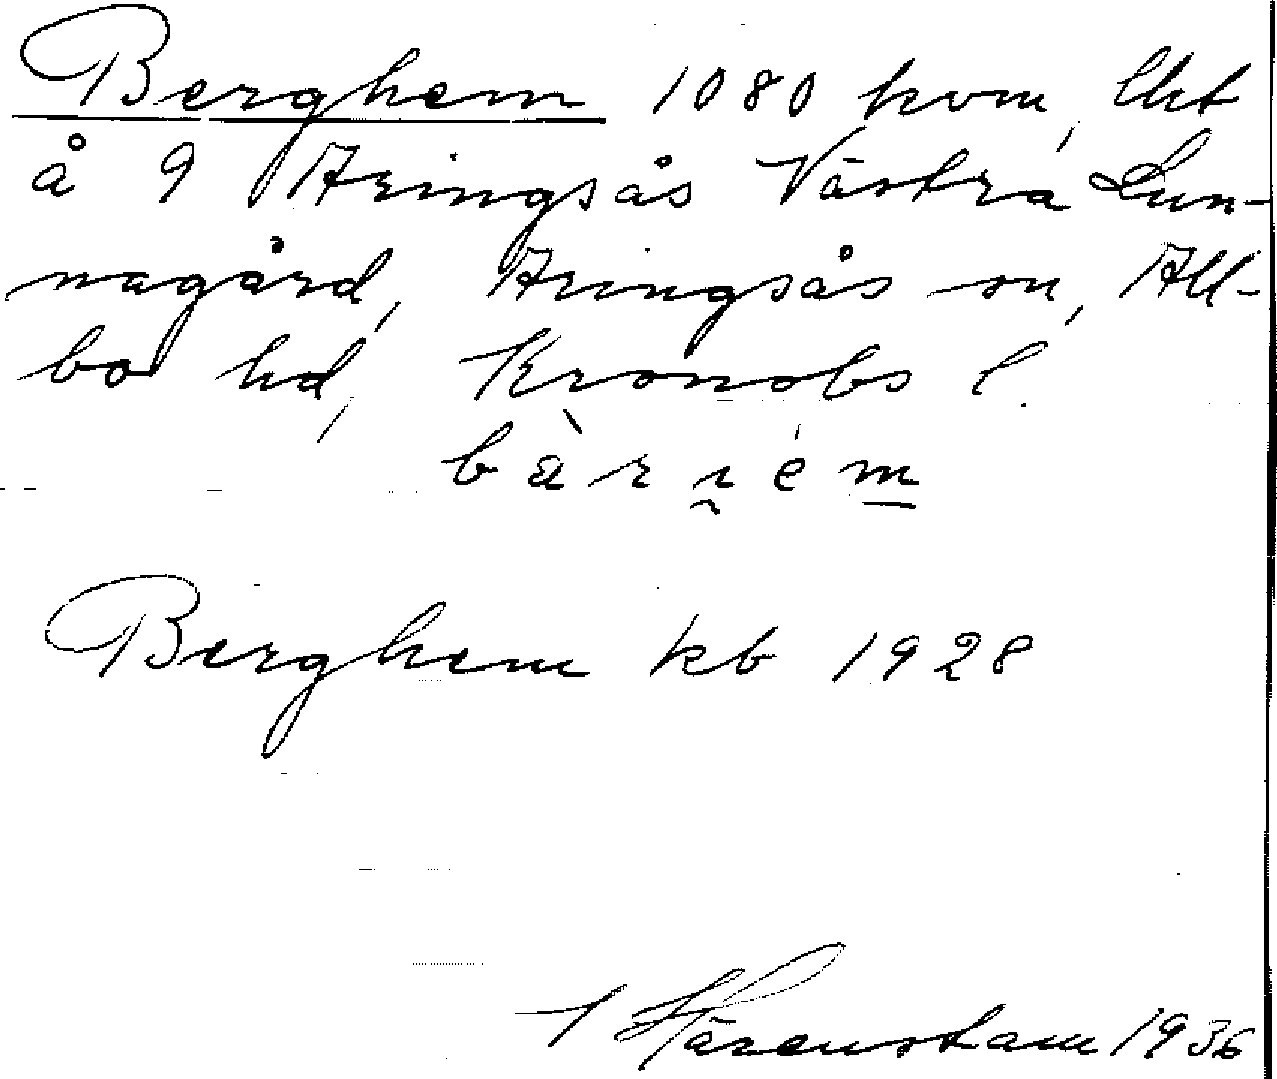 Berghem 1080 kvm, lht
å 9 Aringsås Västra Lun-
nagård, Aringsås sn, All-
bo hd, Kronobs l.
bàrɪ̯ém
Berghem kb 1928
Härenstam 1936